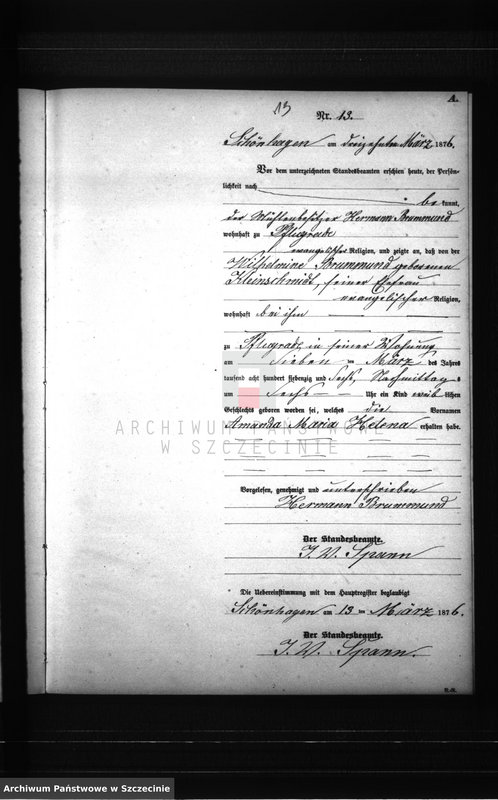 A.
13
Nr. 13.
Schönhagen am dreizehnten März 1876.
Vor dem unterzeichneten Standesbeamten erschien heute, der Persön-
lichkeit nach
be kannt,
der Mühlenbesitzer Hermann Brummund
wohnhaft zu Pflugrade
evangelischer Religion, und zeigte an, daß von der
Wilhelmine Brummund geborenen
Kleinschmidt, seiner Ehefrau
evangelischer Religion,
wohnhaft bei ihm
zu Pflugrade, in seiner Wohnung
am sieben ten März des Jahres
tausend acht hundert siebenzig und sechs, Nachmittag s
um sechs Uhr ein Kind weib lichen
Geschlechts geboren worden sei, welches die Vornamen
Amanda Maria Helena erhalten habe.
ARCHIWUM PAŃSTWOWE
W SZCZECINIE
Vorgelesen, genehmigt und unterschrieben
Hermann Brummund
Der Standesbeamte.
J. V. Spann
Die Uebereinstimmung mit dem Hauptregister beglaubigt
Schönhagen am 13 ten März 1876.
Der Standesbeamte.
J. V. Spann.
Archiwum Państwowe w Szczecinie